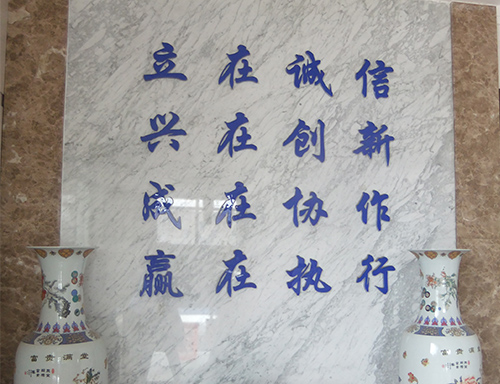 立在诚信
兴在创新
成在协作
赢在执行
富贵满堂
富贵满堂